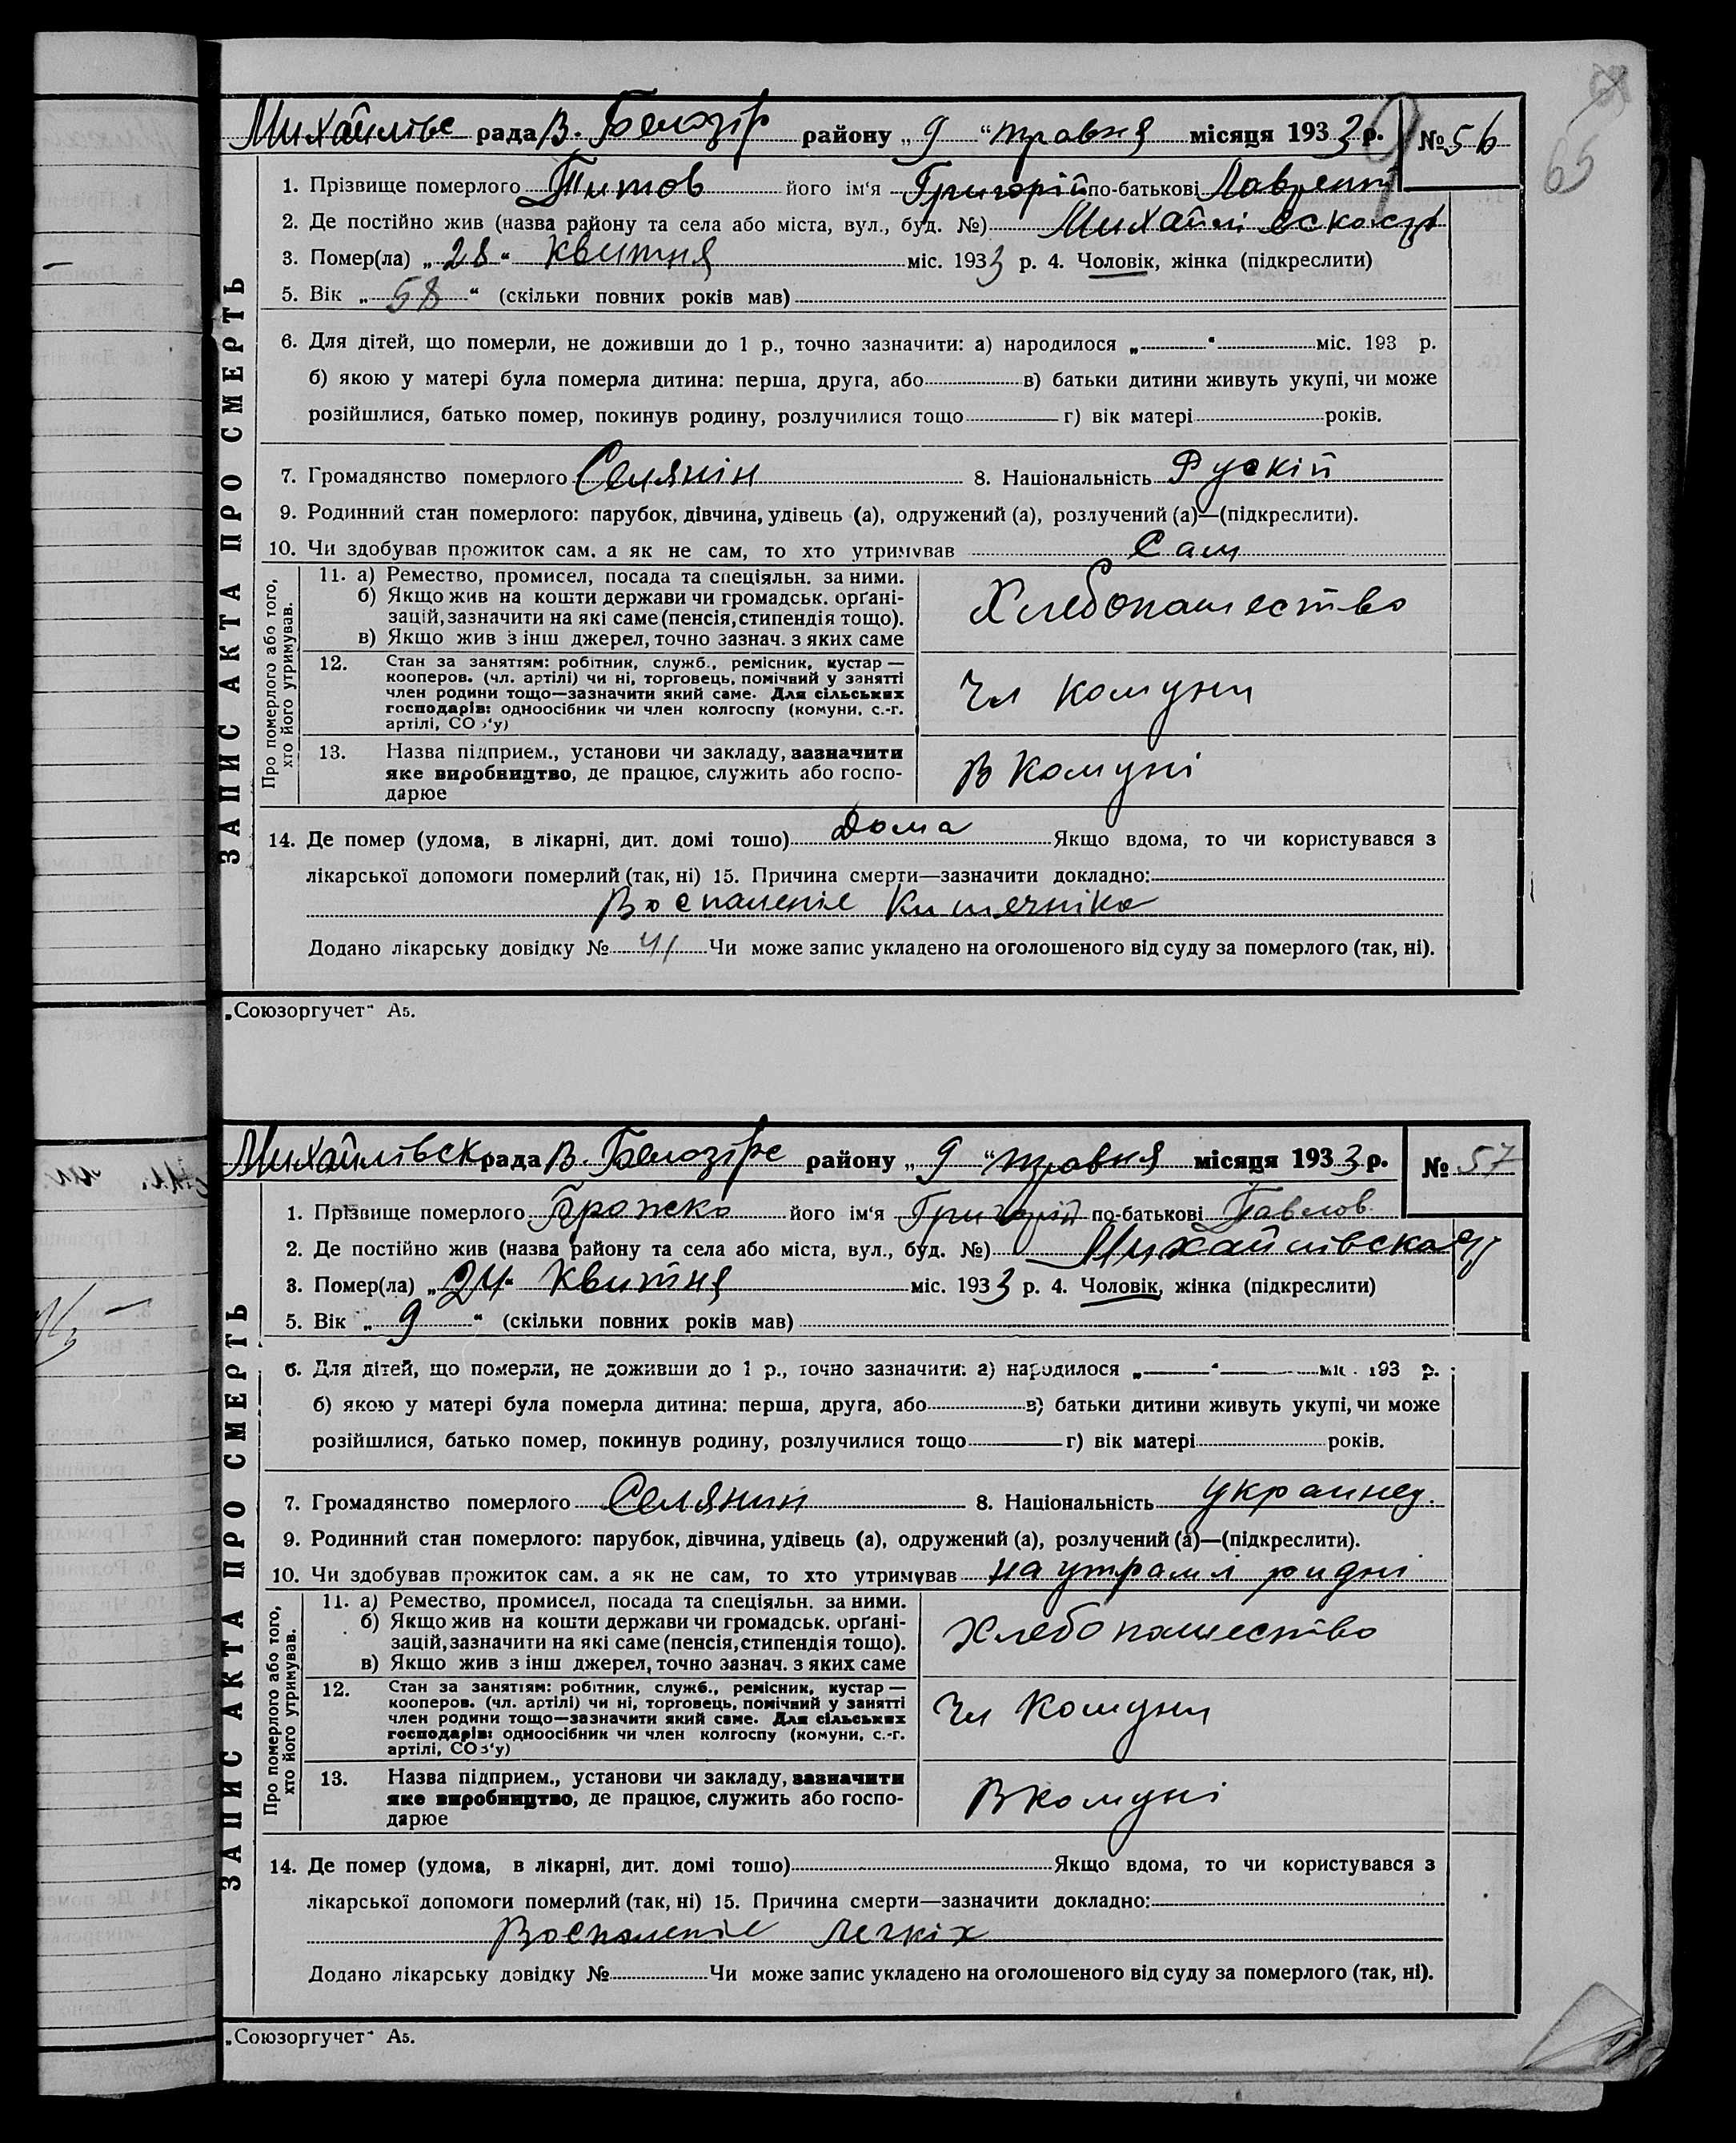 65
Михайлівс рада В. Белозір району „ 9 “ травня місяця 1933 р. № 56
1. Прізвище померлого Титов його ім‘я Григорій по-батькові Лаврент
2. Де постійно жив (назва району та села або міста, вул., буд. №)
3. Помер(ла) „ 28 “ квитня міс. 1933 р. 4. Чоловік, жінка (підкреслити)
5. Вік „ 58 “ (скільки повних років мав)
6. Для дітей, що померли, не доживши до 1 р., точно зазначити: а) народилося „ “ міс. 193 р.
б) якою у матері була померла дитина: перша, друга, або в) батьки дитини живуть укупі, чи може
розійшлися, батько помер, покинув родину, розлучилися тощо г) вік матері років.
7. Громадянство померлого Селянін 8. Національність Рускій
9. Родинний стан померлого: парубок, дівчина, удівець (а), одружений (а), розлучений (а)—(підкреслити).
10. Чи здобував прожиток сам, а як не сам, то хто утримував Сам
ЗАПИС АКТА ПРО СМЕРТЬ
Про померлого або того,
хто його утримував.
11. а) Ремество, промисел, посада та спеціяльн. за ними.
б) Якщо жив на кошти держави чи громадськ. орґані-
зацій, зазначити на які саме (пенсія, стипендія тощо).
в) Якщо жив з інш джерел, точно зазнач. з яких саме
Хлебопашество
12. Стан за заняттям: робітник, служб., ремісник, кустар —
кооперов. (чл. артілі) чи ні, торговець, помічний у занятті
член родини тощо—зазначити який саме. Для сільських
господарів: одноосібник чи член колгоспу (комуни, с.-г.
артілі, СОЗ‘у)
Чл комуни
13. Назва підприєм., установи чи закладу, зазначити
яке виробництво, де працює, служить або госпо-
дарює
В комуні
14. Де помер (удома, в лікарні, дит. домі тощо) Дома Якщо вдома, то чи користувався з
лікарської допомоги померлий (так, ні) 15. Причина смерти—зазначити докладно:
Воспаленіе Кишечніка
Додано лікарську довідку № 41 Чи може запис укладено на оголошеного від суду за померлого (так, ні).
„Союзоргучет“ А5.
Михайлівск рада В. Белозірс району „ 9 “ травня місяця 1933 р. № 57
1. Прізвище померлого Бражко його ім‘я Григорій по-батькові Павлов
2. Де постійно жив (назва району та села або міста, вул., буд. №)
3. Помер(ла) „ 24 “ квитня міс. 1933 р. 4. Чоловік, жінка (підкреслити)
5. Вік „ 9 “ (скільки повних років мав)
6. Для дітей, що померли, не доживши до 1 р., точно зазначити: а) народилося „ “ міс. 193 р.
б) якою у матері була померла дитина: перша, друга, або в) батьки дитини живуть укупі, чи може
розійшлися, батько помер, покинув родину, розлучилися тощо г) вік матері років.
7. Громадянство померлого Селянин 8. Національність украинец.
9. Родинний стан померлого: парубок, дівчина, удівець (а), одружений (а), розлучений (а)—(підкреслити).
10. Чи здобував прожиток сам, а як не сам, то хто утримував на рідні
ЗАПИС АКТА ПРО СМЕРТЬ
Про померлого або того,
хто його утримував.
11. а) Ремество, промисел, посада та спеціяльн. за ними.
б) Якщо жив на кошти держави чи громадськ. орґані-
зацій, зазначити на які саме (пенсія, стипендія тощо).
в) Якщо жив з інш джерел, точно зазнач. з яких саме
Хлебопашество
12. Стан за заняттям: робітник, служб., ремісник, кустар —
кооперов. (чл. артілі) чи ні, торговець, помічний у занятті
член родини тощо—зазначити який саме. Для сільських
господарів: одноосібник чи член колгоспу (комуни, с.-г.
артілі, СОЗ‘у)
Чл Комуни
13. Назва підприєм., установи чи закладу, зазначити
яке виробництво, де працює, служить або госпо-
дарює
В комуні
14. Де помер (удома, в лікарні, дит. домі тощо) Якщо вдома, то чи користувався з
лікарської допомоги померлий (так, ні) 15. Причина смерти—зазначити докладно:
Воспаленіе легкіх
Додано лікарську довідку № Чи може запис укладено на оголошеного від суду за померлого (так, ні).
„Союзоргучет“ А5.